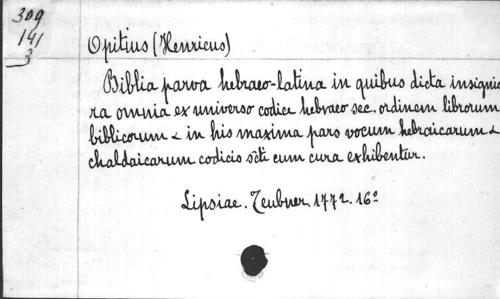 309
141
3
Opitius (Henricus)
Biblia parva hebraeo-latina in quibus dicta insignio
ra omnia ex universo codice hebraeo sec. ordinem librorum
biblicorum & in his maxima pars vocum hebraicarum &
chaldaicarum codicis scti cum cura exhibentur.
Lipsiae. Teubner. 1772. 16º